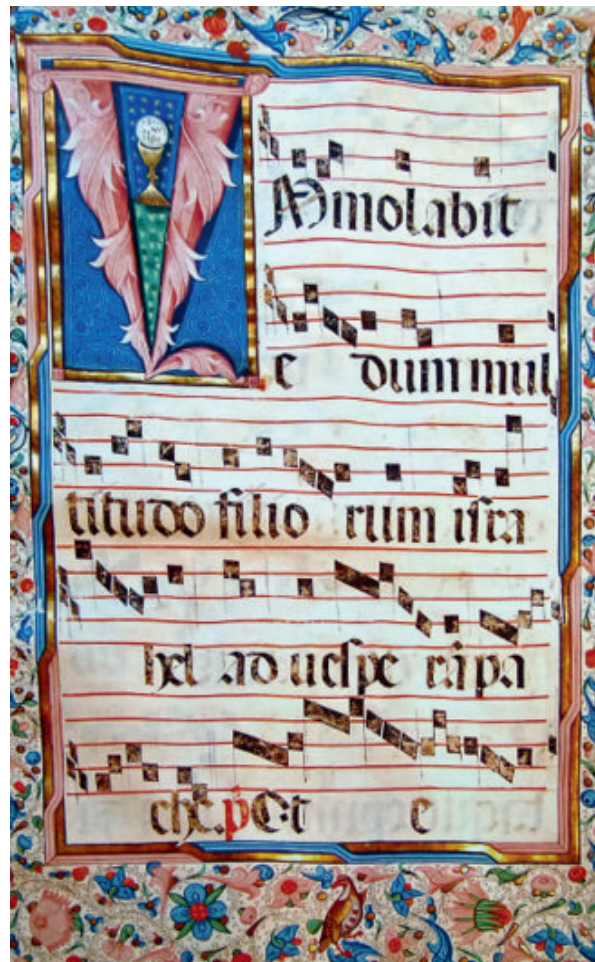 Mmolabit
e dum mul
titudo filio rum isra
hel ad uespe rā pa
che. p Et e